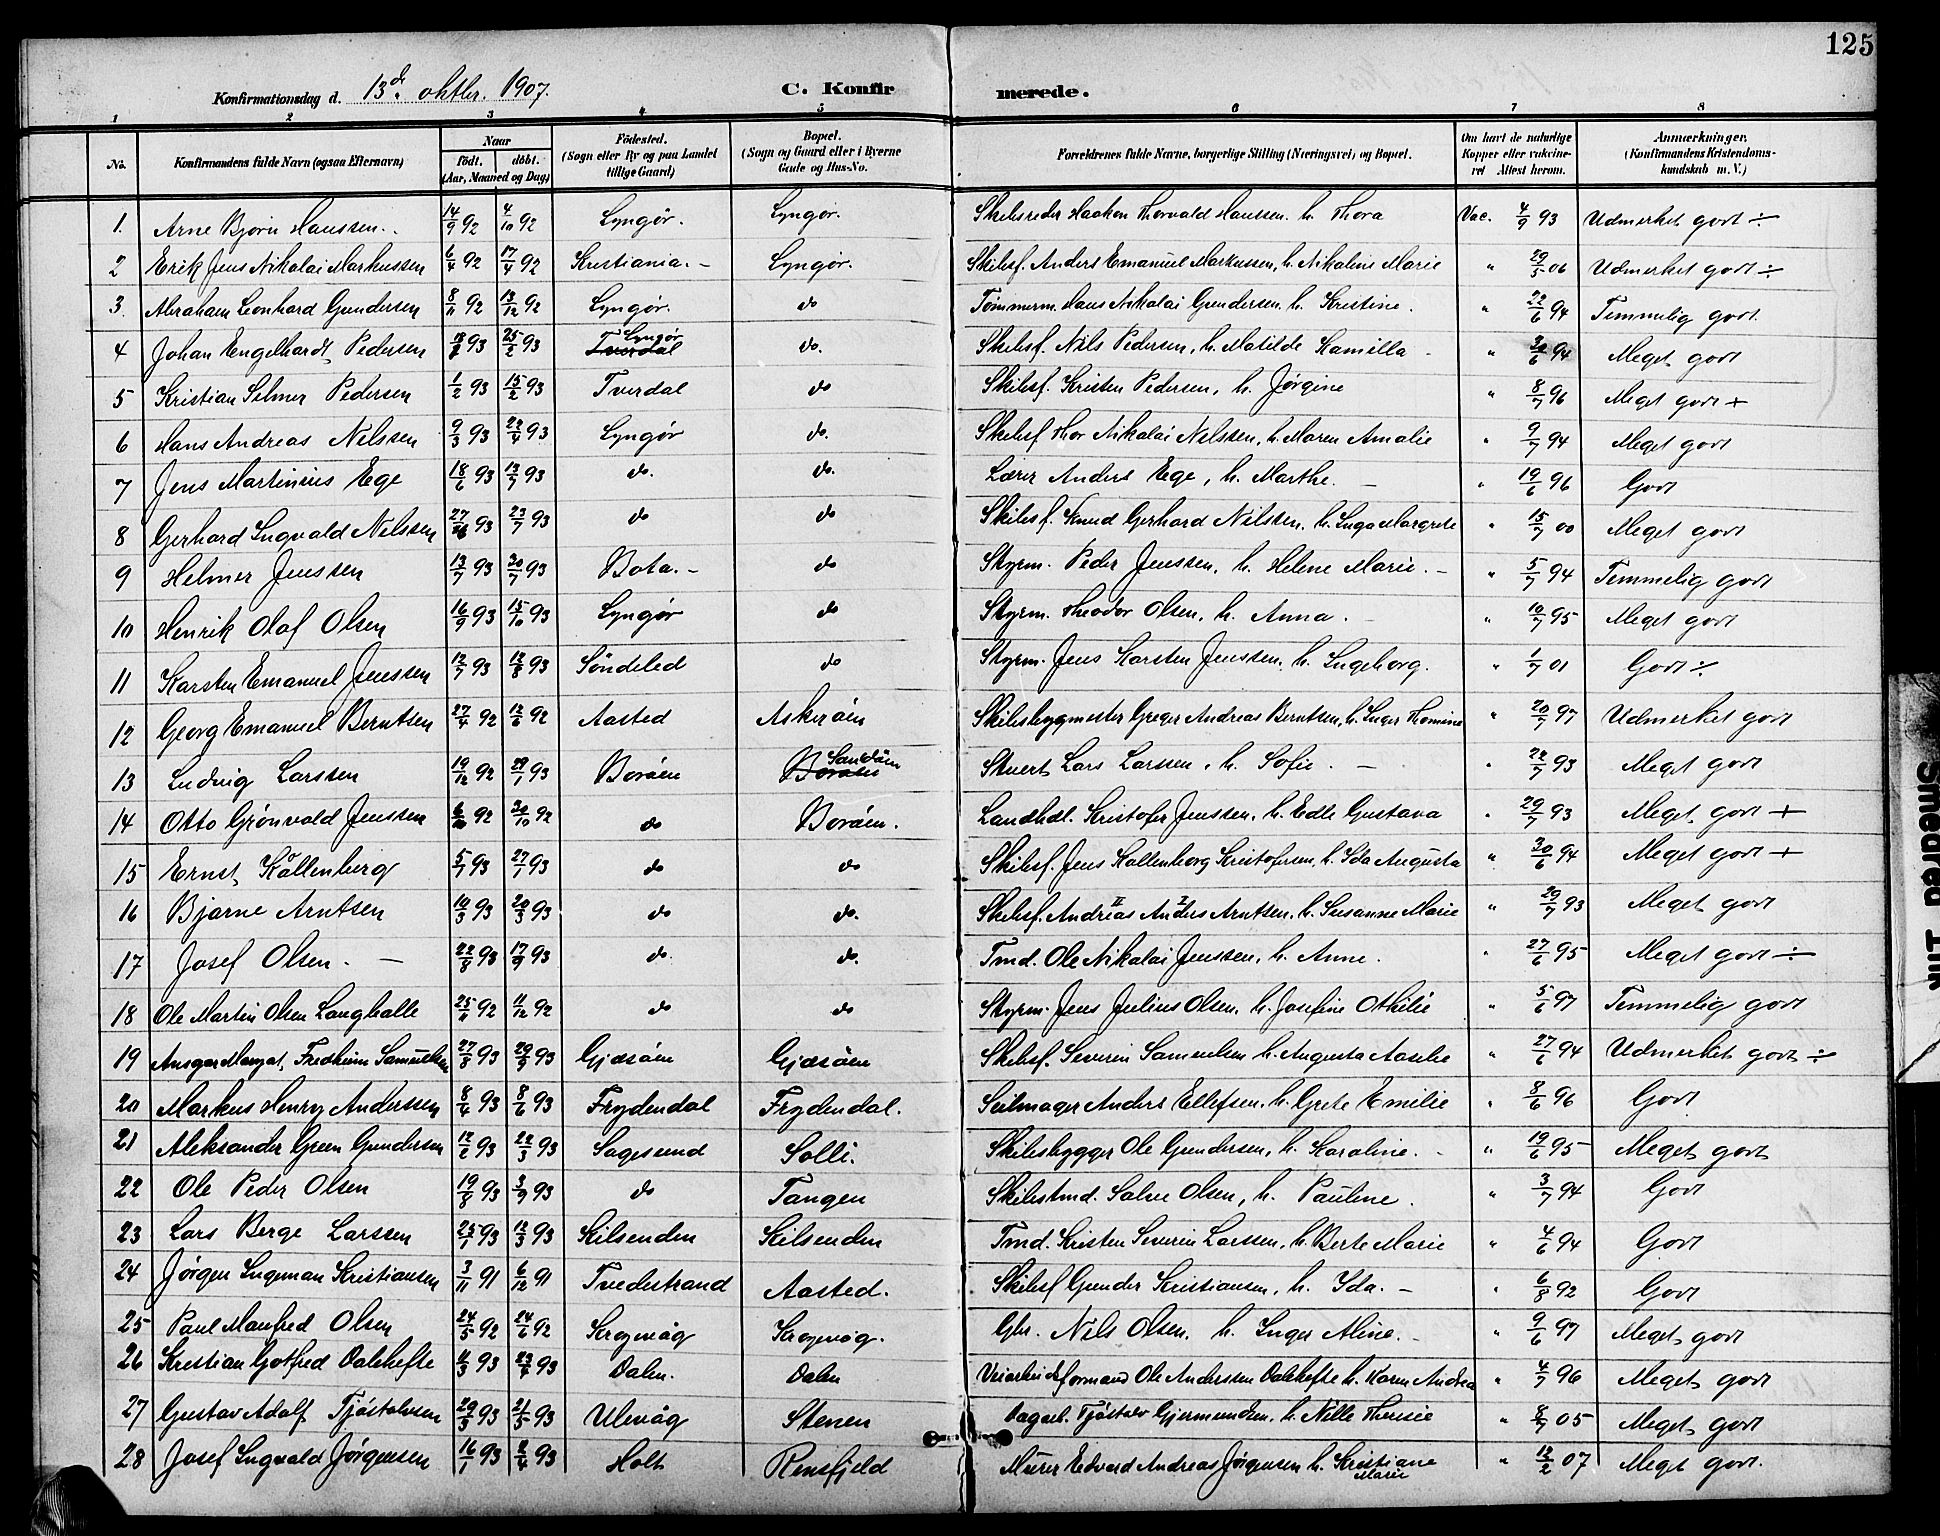 125
Konfirmationsdag d. 13d. oktbr. 1907. C. Konfirmerede.
1 2 3 4 5 6 7 8
No. Konfirmandens fulde Navn (ogsaa Efternavn) Naar födt. döbt. (Aar, Maaned og Dag) Födested. (Sogn eller By og paa Landet tillige Gaard) Bopæl. (Sogn og Gaard eller i Byerne Gade og Hus-No. Forældrenes fulde Navne, borgerlige Stilling (Næringsvei) og Bopæl. Om havt de naturlige Kopper eller vakcineret Attest herom. Anmærkninger. (Konfirmandens Kristendomskundskab m. V.)
1. Arne Bjørn Hanssen. 14/9 92 4/10 92 Lyngør. Lyngør. Skibsreder Haakon Thorvald Hanssen. h. Thora Vac. 4/9 93 Udmerket godt ÷
2 Erik Jens Nikolai Markussen 6/4 92 17/4 92 Kristiania. - Lyngør. Skibsf. Anders Emanuel Markussen, h. Nikoline Marie " 29/5 06 Udmerket godt ÷
3. Abraham Leonhard Gundersen 8/11 92 13/12 92 Lyngør. do Tømmerm. Hans Nikolai Gundersen. h. Kristine. " 22/6 94 Temmelig godt.
4 Johan Engelhardt Pedersen 93 25/2 93 Tverdal Lyngør do. Skibsf. Nils Pedersen, h. Matilde Kamilla - " 94 Meget godt
5 Kristian Selmer Pedersen 1/2 93 15/2 93 Tverdal do Skibsf. Kristen Pedersen, h. Jørgine " 8/7 96 Meget godt +
6 Hans Andreas Nilssen 9/3 93 22/4 93 Lyngør do. Skibsf. Thor Nikolai Nilssen, h. Maren Amalie " 9/7 94 Meget godt
7 Jens Martinius Ege 18/6 93 13/7 93 do. do. Lærer Anders Ege, h. Marthe. - " 19/6 96 Godt
8 Gerhard Ingvald Nilssen 27/6 93 23/7 93 do do Skibsf. Knud Gerhard Nilssen. h. Inga Margrete " 15/7 00 Meget godt
9 Helmer Jenssen 13/7 93 30/7 93 Bota. - do Styrm. Peder Jenssen, h. Helene Marie. - " 5/7 94 Temmelig godt
10 Henrik Olaf Olsen 16/9 93 15/10 93 Lyngør do Styrm. Theodor Olsen, h. Anna. - " 10/7 95 Meget godt
11 Karsten Emanuel Jenssen 12/7 93 12/8 93 Søndeled do Styrm. Jens Karsten Jenssen. h. Ingeborg. " 1/7 01 Godt ÷
12 Georg Emanuel Berntsen 27/4 92 12/6 92 Aasted Askerøen Skibsbygmester Greger Andreas Berntsen, h. Inger Thomine " 20/7 97 Udmerket godt
13 Ludvig Larssen 19/12 92 93 Borøen Sandøen Stuert Lars Larssen, h. Sofie. - " 22/7 93 Meget godt
14 Otto Grønvold Jenssen 92 30/10 92 do Borøen. Landhdl. Kristofer Jenssen. h. Edle Gustava " 29/7 93 Meget godt +
15 Ernst Kollenberg 5/7 93 27/7 93 do do Skibsf. Jens Kollenborg Kristofersen, h. Ida Augusta " 30/6 94 Meget godt +
16 Bjarne Arntsen 10/3 93 20/3 93 do do. Skibsf. Andreas II Anders I Arntsen. h. Susanne Marie " 29/7 93 Meget godt
17 Josef Olsen. - 22/8 93 17/9 93 do. do. Tmd. Ole Nikolai Jenssen, h. Anne. " 27/6 95 Meget godt ÷
18 Ole Martin Olsen Langballe 25/11 92 11/12 92 do do Styrm. Jens Julius Olsen, h. Josefine Othilie " 5/6 97 Temmelig godt
19 Ansgar Margat. Fredheim Samuelsen 27/8 93 93 Gjæsøen Gjæsøen Skibsf. Severin Samuelsen h. Augusta Aaselie " 27/6 94 Udmerket godt ÷
20 Markus Henry Anderssen 8/4 93 8/6 93 Frydendal Frydendal. Seilmager Anders Ellefsen. h. Grete Emilie " 8/6 96 Godt
21 Aleksander Green Gundersen 12/2 93 22/3 93 Sagesund Solli. Skibsbygger Ole Gundersen, h. Karoline. " 19/6 95 Meget godt
22 Ole Peder Olsen 19/8 93 3/9 93 do Tangen Skibstmd. Salve Olsen, h. Pauline. " 3/7 94 Godt
23 Lars Berge Larssen 25/1 93 12/3 93 Kilsenden Kilsenden Tmd. Kristen Severin Larssen, h. Berte Marie " 4/6 94 Godt
24 Jørgen Ingeman Kristiansen 3/11 91 6/12 91 Tvedestrand Aasted. Skibsf Gunder Kristiansen, h. Ida. - " 6/8 92 Godt
25 Paul Manfred Olsen 24/5 92 24/6 92 Krogevåg Krogevåg. Gbr. Nils Olsen. h. Inger Aline. - " 9/6 97 Meget godt
26 Kristian Gotfred Dalehefte 11/3 93 23/4 93 Dalen. Dalen Veiarbeidsformand Ole Anderssen Dalehefte h. Karen Andrea " 4/7 96 Meget godt
27 Gustav Adolf Tjøstolvsen 29/3 93 21/5 93 Ulevåg Stenen Dagarb. Tjøstolv Gjermundsen. h. Nille Therese " 8/7 05 Meget godt
28 Josef Ingvald Jørgensen 16/1 93 2/4 93 Holt Rensfjeld Murer Edvard Andreas Jørgensen h. Kristiane Marie " 12/2 07 Meget godt.